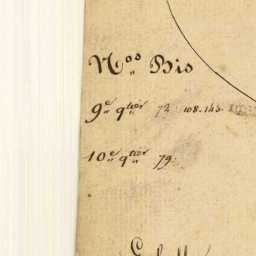 Nos Bis
9e qtier 72 108. 143.
10e qtier 79.